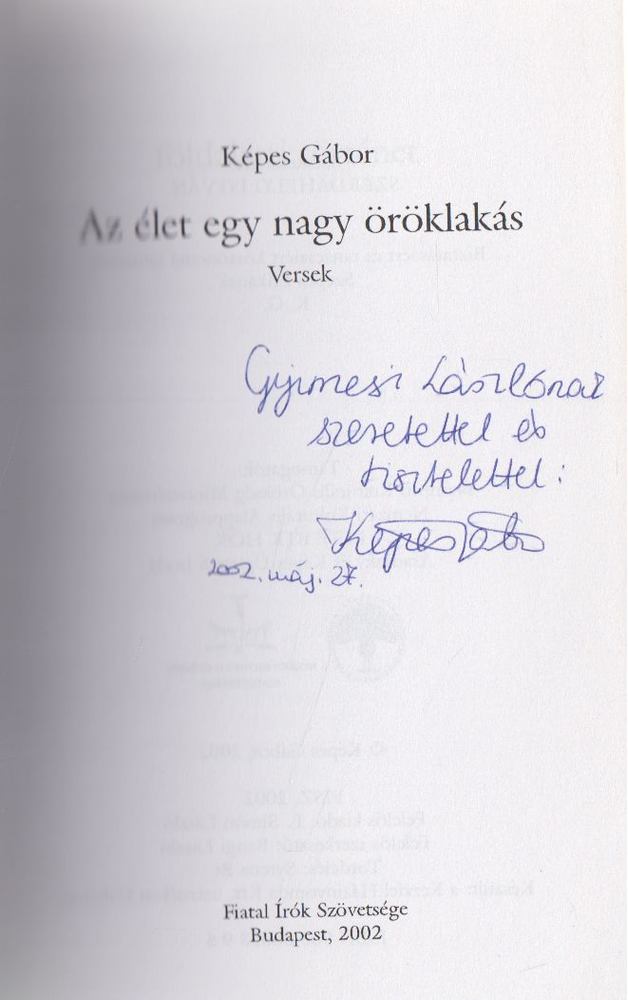 Képes Gábor
Az élet egy nagy öröklakás
Versek
Gyimesi Lászlónak
szeretettel és
tisztelettel:
Képes Gábor
2002. máj. 27.
Fiatal Írók Szövetsége
Budapest, 2002